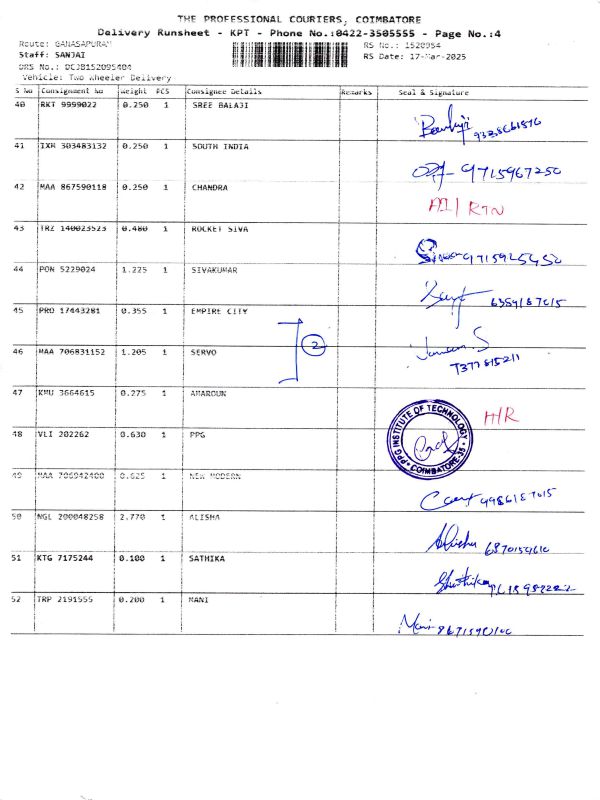 THE PROFESSIONAL COURIERS, COIMBATORE
Delivery Runsheet - KPT - Phone No.:0422-3505555 - Page No.:4
Route: GANASAPURAM
RS No.: 1520954
Staff: SANJAI
RS Date: 17-Mar-2025
DRS No.: DCJB152095404
Vehicle: Two Wheeler Delivery
S No Consignment No Weight PCS Consignee Details Remarks Seal & Signature
40 RKT 9999022 0.250 1 SREE BALAJI
41 IXM 303483132 0.250 1 SOUTH INDIA 9715967250
42 MAA 867590118 0.250 1 CHANDRA RTN
43 TRZ 140023523 0.480 1 ROCKET SIVA
44 PON 5229024 1.225 1 SIVAKUMAR 6359187015
45 PRO 17443281 0.355 1 EMPIRE CITY
2
46 MAA 706831152 1.205 1 SERVO
47 KMU 3664615 0.275 1 AMARDUN H/R
48 VLI 202262 0.630 1 PPG
PPG INSTITUTE OF TECHNOLOGY COIMBATORE-35
49 MAA 706942400 0.625 1 NEW MODERN
50 NGL 200048258 2.770 1 ALISHA
51 KTG 7175244 0.100 1 SATHIKA
52 TRP 2191555 0.200 1 MANI Mani